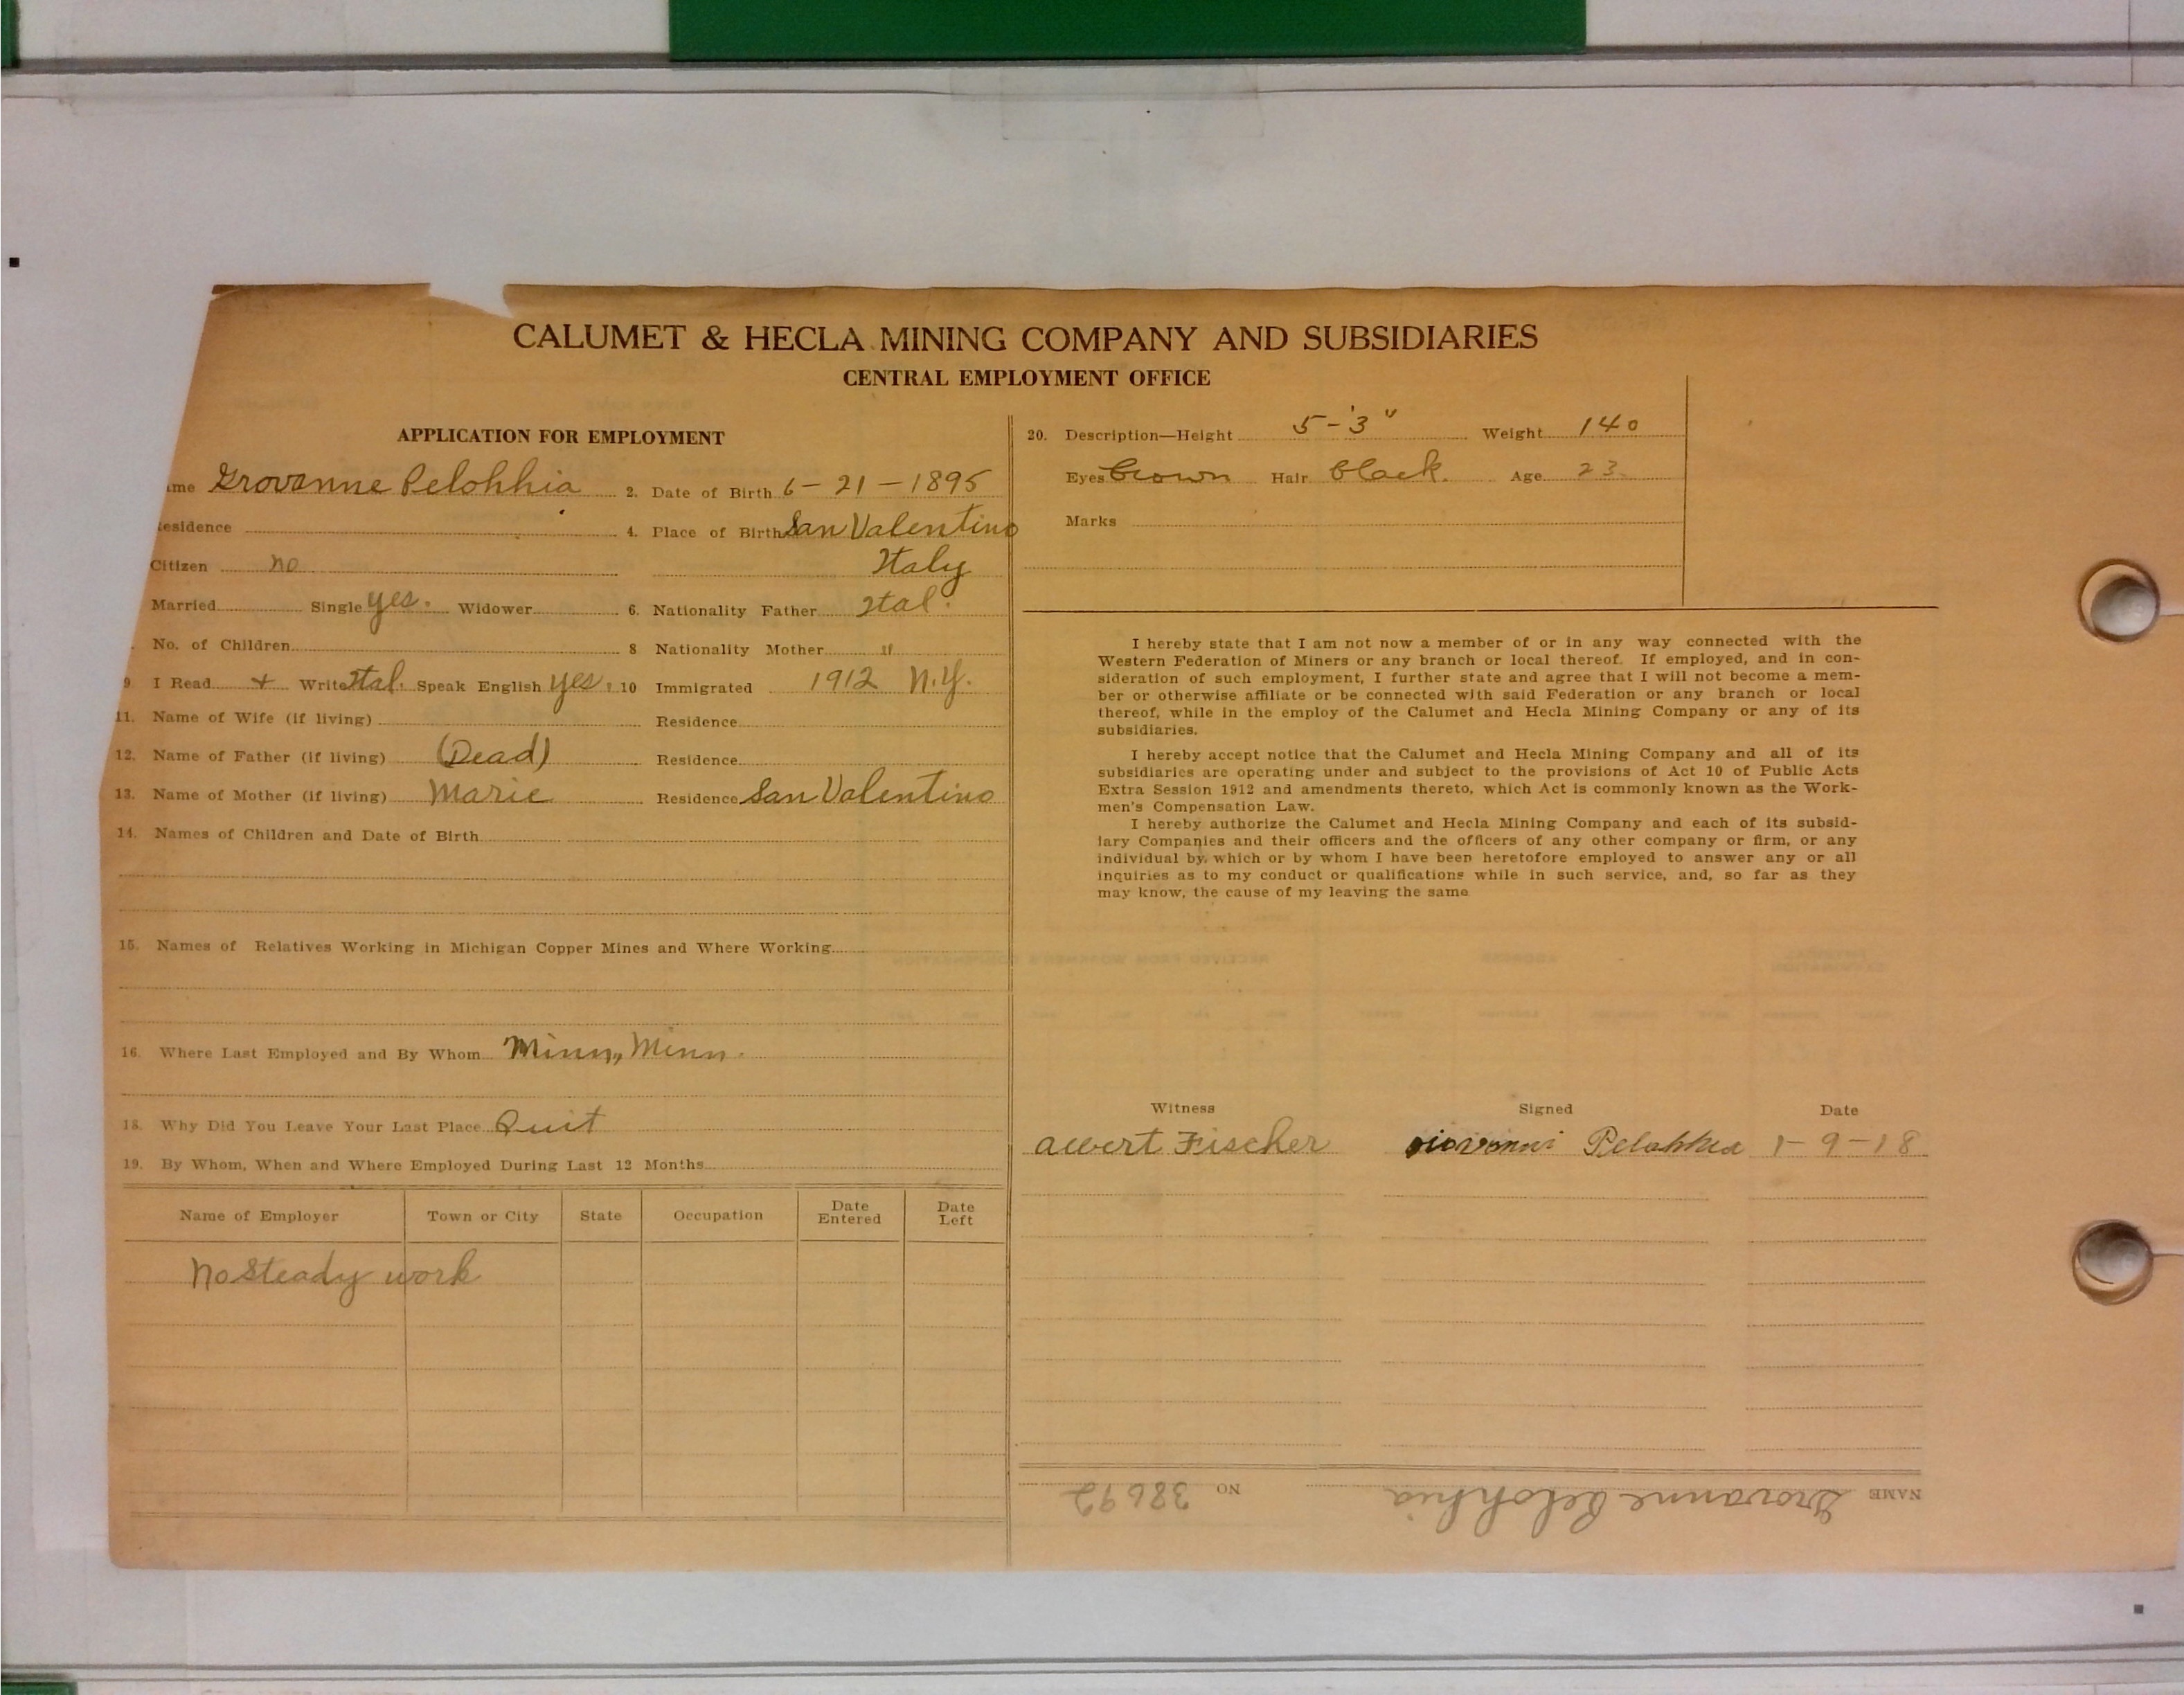 CALUMET & HECLA MINING COMPANY AND SUBSIDIARIES
CENTRAL EMPLOYMENT OFFICE
APPLICATION FOR EMPLOYMENT
ame Grovanne Pelohhia 2. Date of Birth 6-21-1895
esidence 4. Place of Birth San Valentino
Citizen no Italy
Married Single yes. Widower 6. Nationality Father Ital.
No. of Children 8 Nationality Mother "
9. I Read + Write Ital. Speak English yes. 10 Immigrated 1912 N.Y.
11. Name of Wife (if living) Residence
12. Name of Father (if living) (Dead) Residence
13. Name of Mother (if living) Marie Residence San Valentino
14. Names of Children and Date of Birth
15. Names of Relatives Working in Michigan Copper Mines and Where Working
16. Where Last Employed and By Whom Minn, Minn.
18. Why Did You Leave Your Last Place Quit
19. By Whom, When and Where Employed During Last 12 Months
Name of Employer Town or City State Occupation Date Entered Date Left
No steady work
20. Description—Height 5-'3" Weight 140
Eyes brown Hair black. Age 23
Marks
I hereby state that I am not now a member of or in any way connected with the
Western Federation of Miners or any branch or local thereof. If employed, and in con-
sideration of such employment, I further state and agree that I will not become a mem-
ber or otherwise affiliate or be connected with said Federation or any branch or local
thereof, while in the employ of the Calumet and Hecla Mining Company or any of its
subsidiaries.
I hereby accept notice that the Calumet and Hecla Mining Company and all of its
subsidiaries are operating under and subject to the provisions of Act 10 of Public Acts
Extra Session 1912 and amendments thereto, which Act is commonly known as the Work-
men's Compensation Law.
I hereby authorize the Calumet and Hecla Mining Company and each of its subsid-
iary Companies and their officers and the officers of any other company or firm, or any
individual by, which or by whom I have been heretofore employed to answer any or all
inquiries as to my conduct or qualifications while in such service, and, so far as they
may know, the cause of my leaving the same
Witness Signed Date
Albert Fischer Giovanni Pelohhia 1-9-18
NAME Grovanne Pelohhia NO 38692